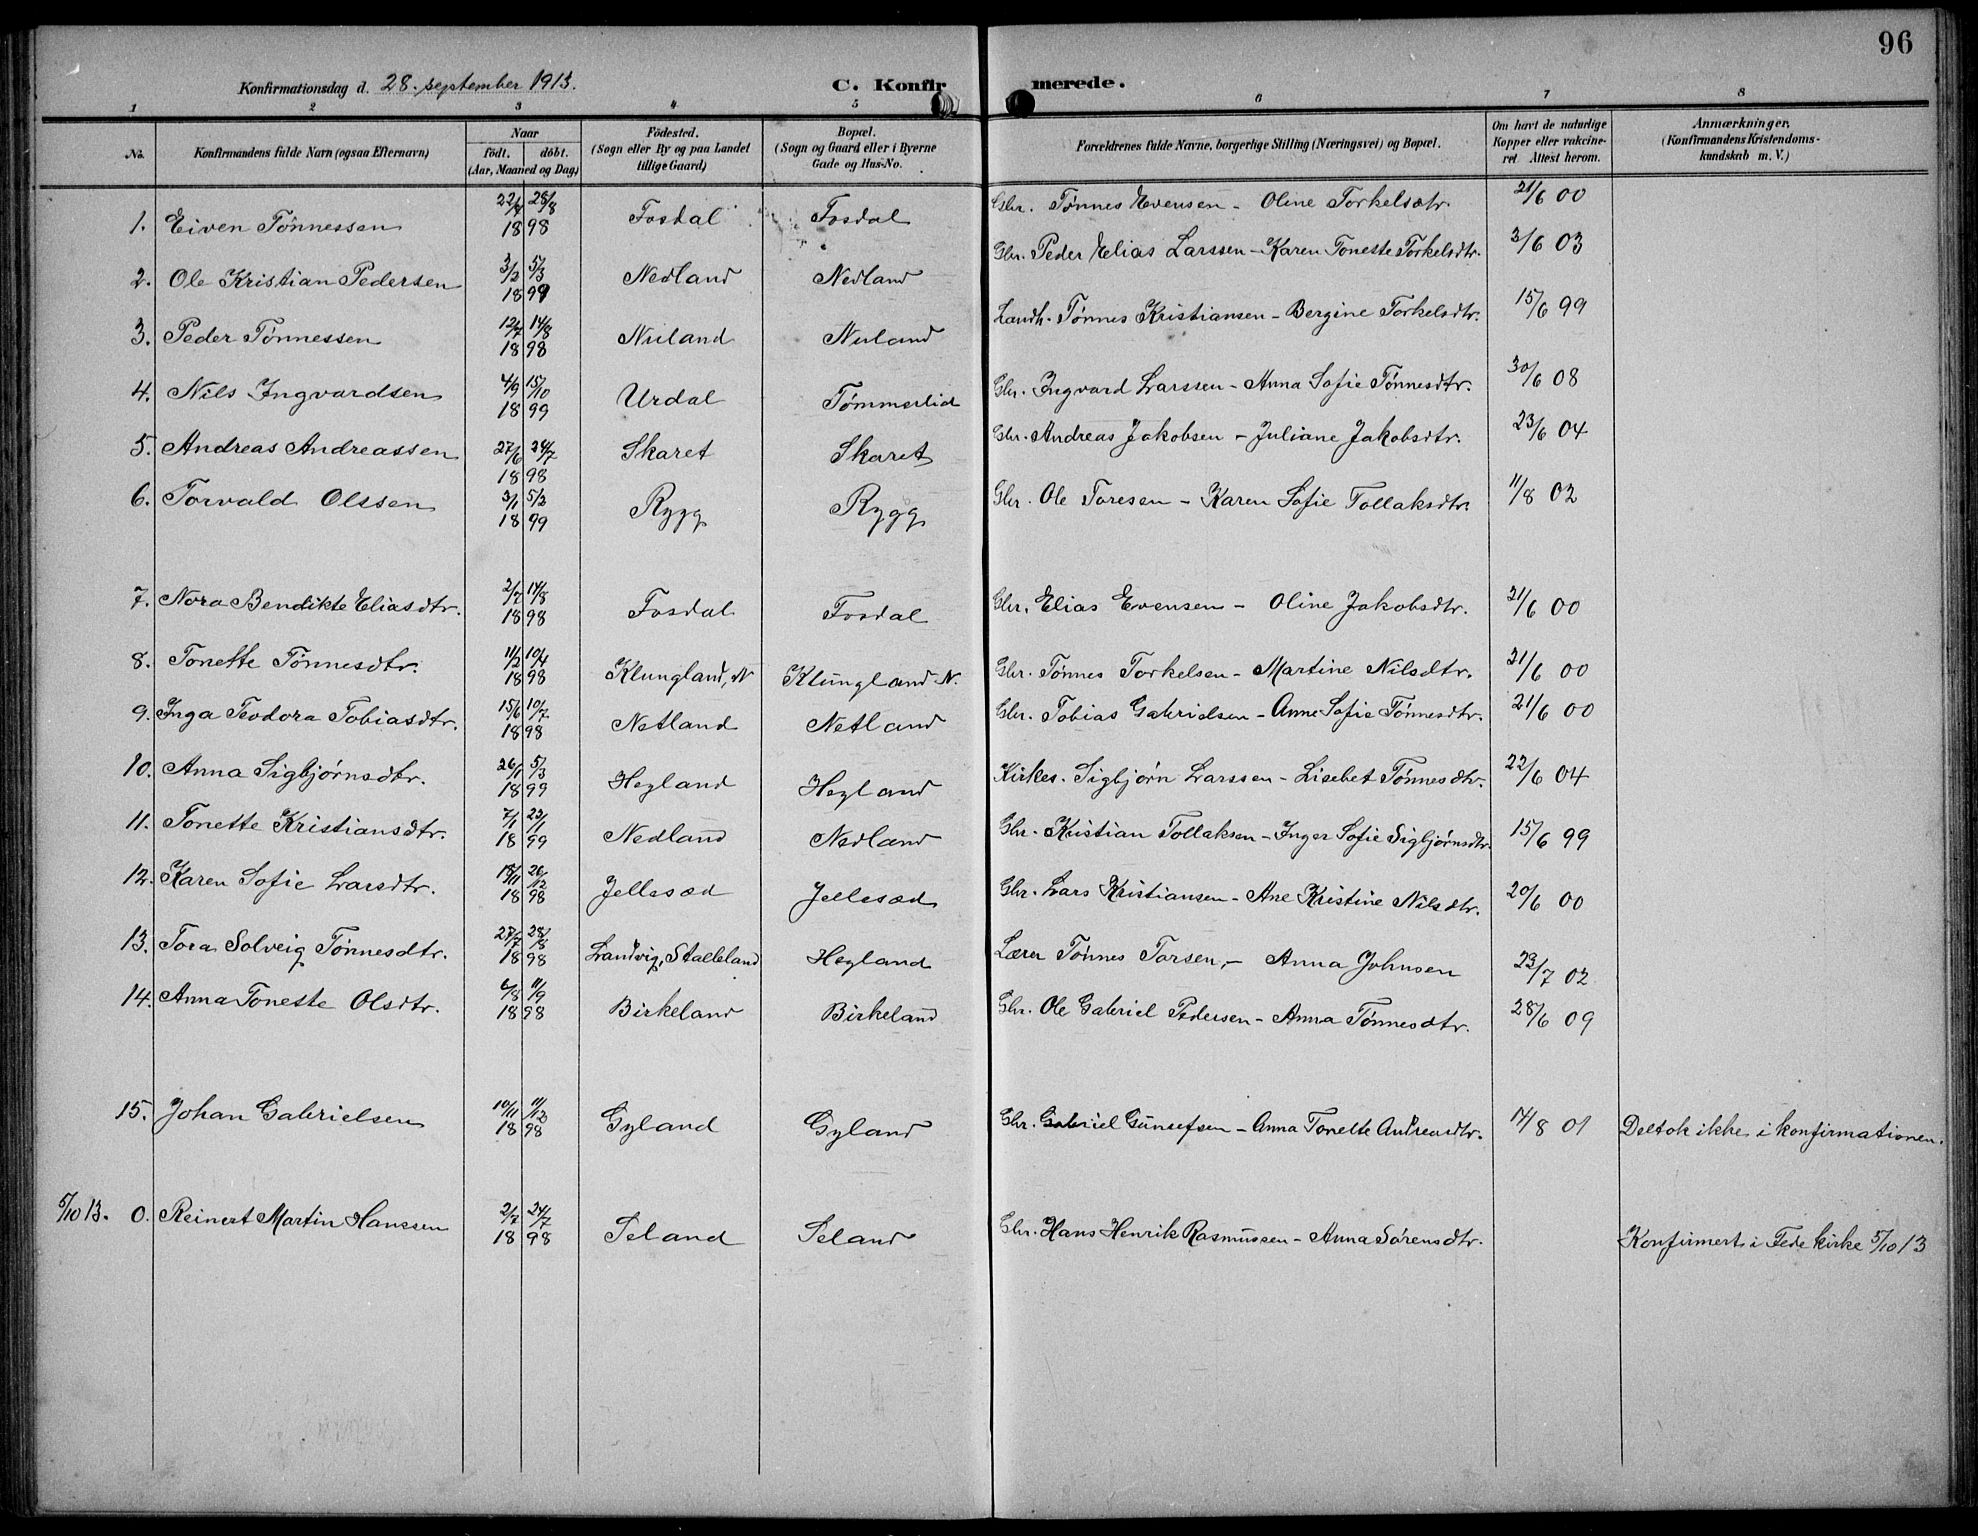 96
Konfirmationsdag d. 28. september 1913.
C. Konfirmerede.
1 2 3 4 5 6 7 8
No.
Konfirmandens fulde Navn (ogsaa Efternavn)
Naar
født. døbt.
(Aar, Maaned og Dag)
Fødested.
(Sogn eller By og paa Landet
tillige Gaard)
Bopæl.
(Sogn og Gaard eller i Byerne
Gade og Hus-No.
Forældrenes fulde Navne, borgerlige Stilling (Næringsvei) og Bopæl.
Om havt de naturlige
Kopper eller vakcine-
ret Attest herom.
Anmærkninger,
(Konfirmandens Kristendoms-
kundskab m. V.)
1. Eiven Tønnessen 22/7 28/8 1898 Fosdal Fosdal Gbr. Tønnes Evensen - Oline Torkelsdtr. 21/6 00
2. Ole Kristian Pedersen 3/2 5/3 1899 Nedland Nedland Gbr. Peder Elias Larssen - Karen Tonette Torkelsdtr. 3/6 03
3. Peder Tønnessen 12/7 14/8 1898 Nuland Nuland Landh. Tønnes Kristiansen - Bergine Torkelsdtr. 15/6 99
4. Nils Ingvardsen 4/9 15/10 1899 Urdal Tømmerlid Gbr. Ingvard Larssen - Anna Sofie Tønnesdtr. 30/6 08
5. Andreas Andreassen 27/6 24/7 1898 Skaret Skaret Gbr. Andreas Jakobsen - Juliane Jakobsdtr. 23/6 04
6. Torvald Olssen 3/1 5/2 1899 Rygg Rygg Gbr. Ole Toresen - Karen Sofie Tollaksdtr. 11/8 02
7. Nora Bendikte Eliasdtr. 2/7 14/8 1898 Fosdal Fosdal Gbr. Elias Evensen - Oline Jakobsdtr. 21/6 00
8. Tonette Tønnesdtr. 11/2 10/4 1898 Klungland, N Klungland N. Gbr. Tønnes Torkelsen - Martine Nilsdtr. 21/6 00
9. Inga Teodora Tobiasdtr. 15/6 10/7 1898 Netland Netland Gbr. Tobias Gabrielsen - Anne Sofie Tønnesdtr. 21/6 00
10. Anna Sigbjørnsdtr. 26/1 5/3 1899 Hegland Hegland Kirkes. Sigbjørn Larssen - Lisebet Tønnesdtr. 22/6 04
11. Tonette Kristiansdtr. 7/1 23/1 1899 Nedland Nedland Gbr. Kristian Tollaksen - Inger Sofie Sigbjørnsdtr. 15/6 99
12. Karen Sofie Larsdtr. 18/11 26/12 1898 Jellesæd Jellesæd Gbr. Lars Kristiansen - Ane Kristine Nilsdtr. 20/6 00
13. Tora Solveig Tønnesdtr. 27/7 28/8 1898 Landvig, Stalleland Hegland Lærer Tønnes Tarsen, - Anna Johnsen 23/7 02
14. Anna Tonette Olsdtr. 6/8 11/9 1898 Birkeland Birkeland Gbr. Ole Gabriel Pedersen - Anna Tønnesdtr. 28/6 09
15. Johan Gabrielsen 10/11 11/12 1898 Gyland Gyland Gbr. Gabriel Gunsefsen - Anna Tonette Andreasdtr. 14/8 01 Deltok ikke i konfirmationen.
5/10 13. 0. Reinert Martin Hanssen 2/7 24/7 1898 Seland Seland Gbr. Hans Henrik Rasmussen - Anna Sørensdtr. Konfirmert i Fede kirke 5/10 13